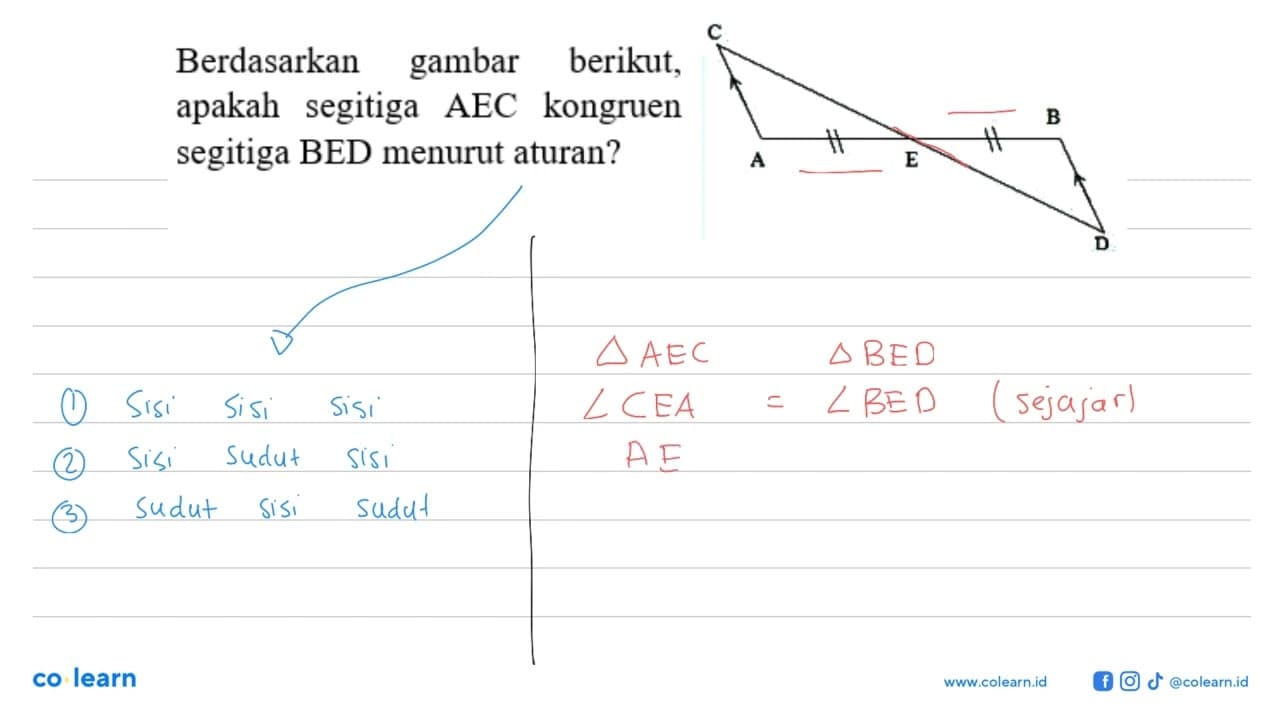 Berdasarkan gambar berikut,
apakah segitiga AEC kongruen
segitiga BED menurut aturan?
C
B
A
E
D
① Sisi sisi sisi
② Sisi sudut sisi
③ sudut sisi sudut
△ AEC △ BED
∠ CEA = ∠ BED (sejajar)
AE
co learn
www.colearn.id
@colearn.id